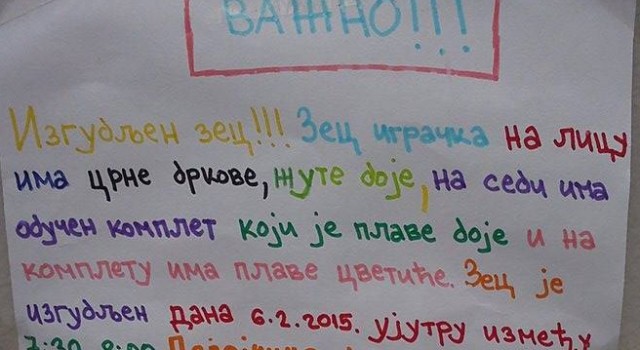 ВАЖНО!!!
Изгубљен зец!!! Зец играчка на лицу
има црне бркове, жуте боје, на себи има
обучен комплет који је плаве боје и на
комплету има плаве цветиће. Зец је
изгубљен дана 6.2.2015. ујутру између
7:30 8:00